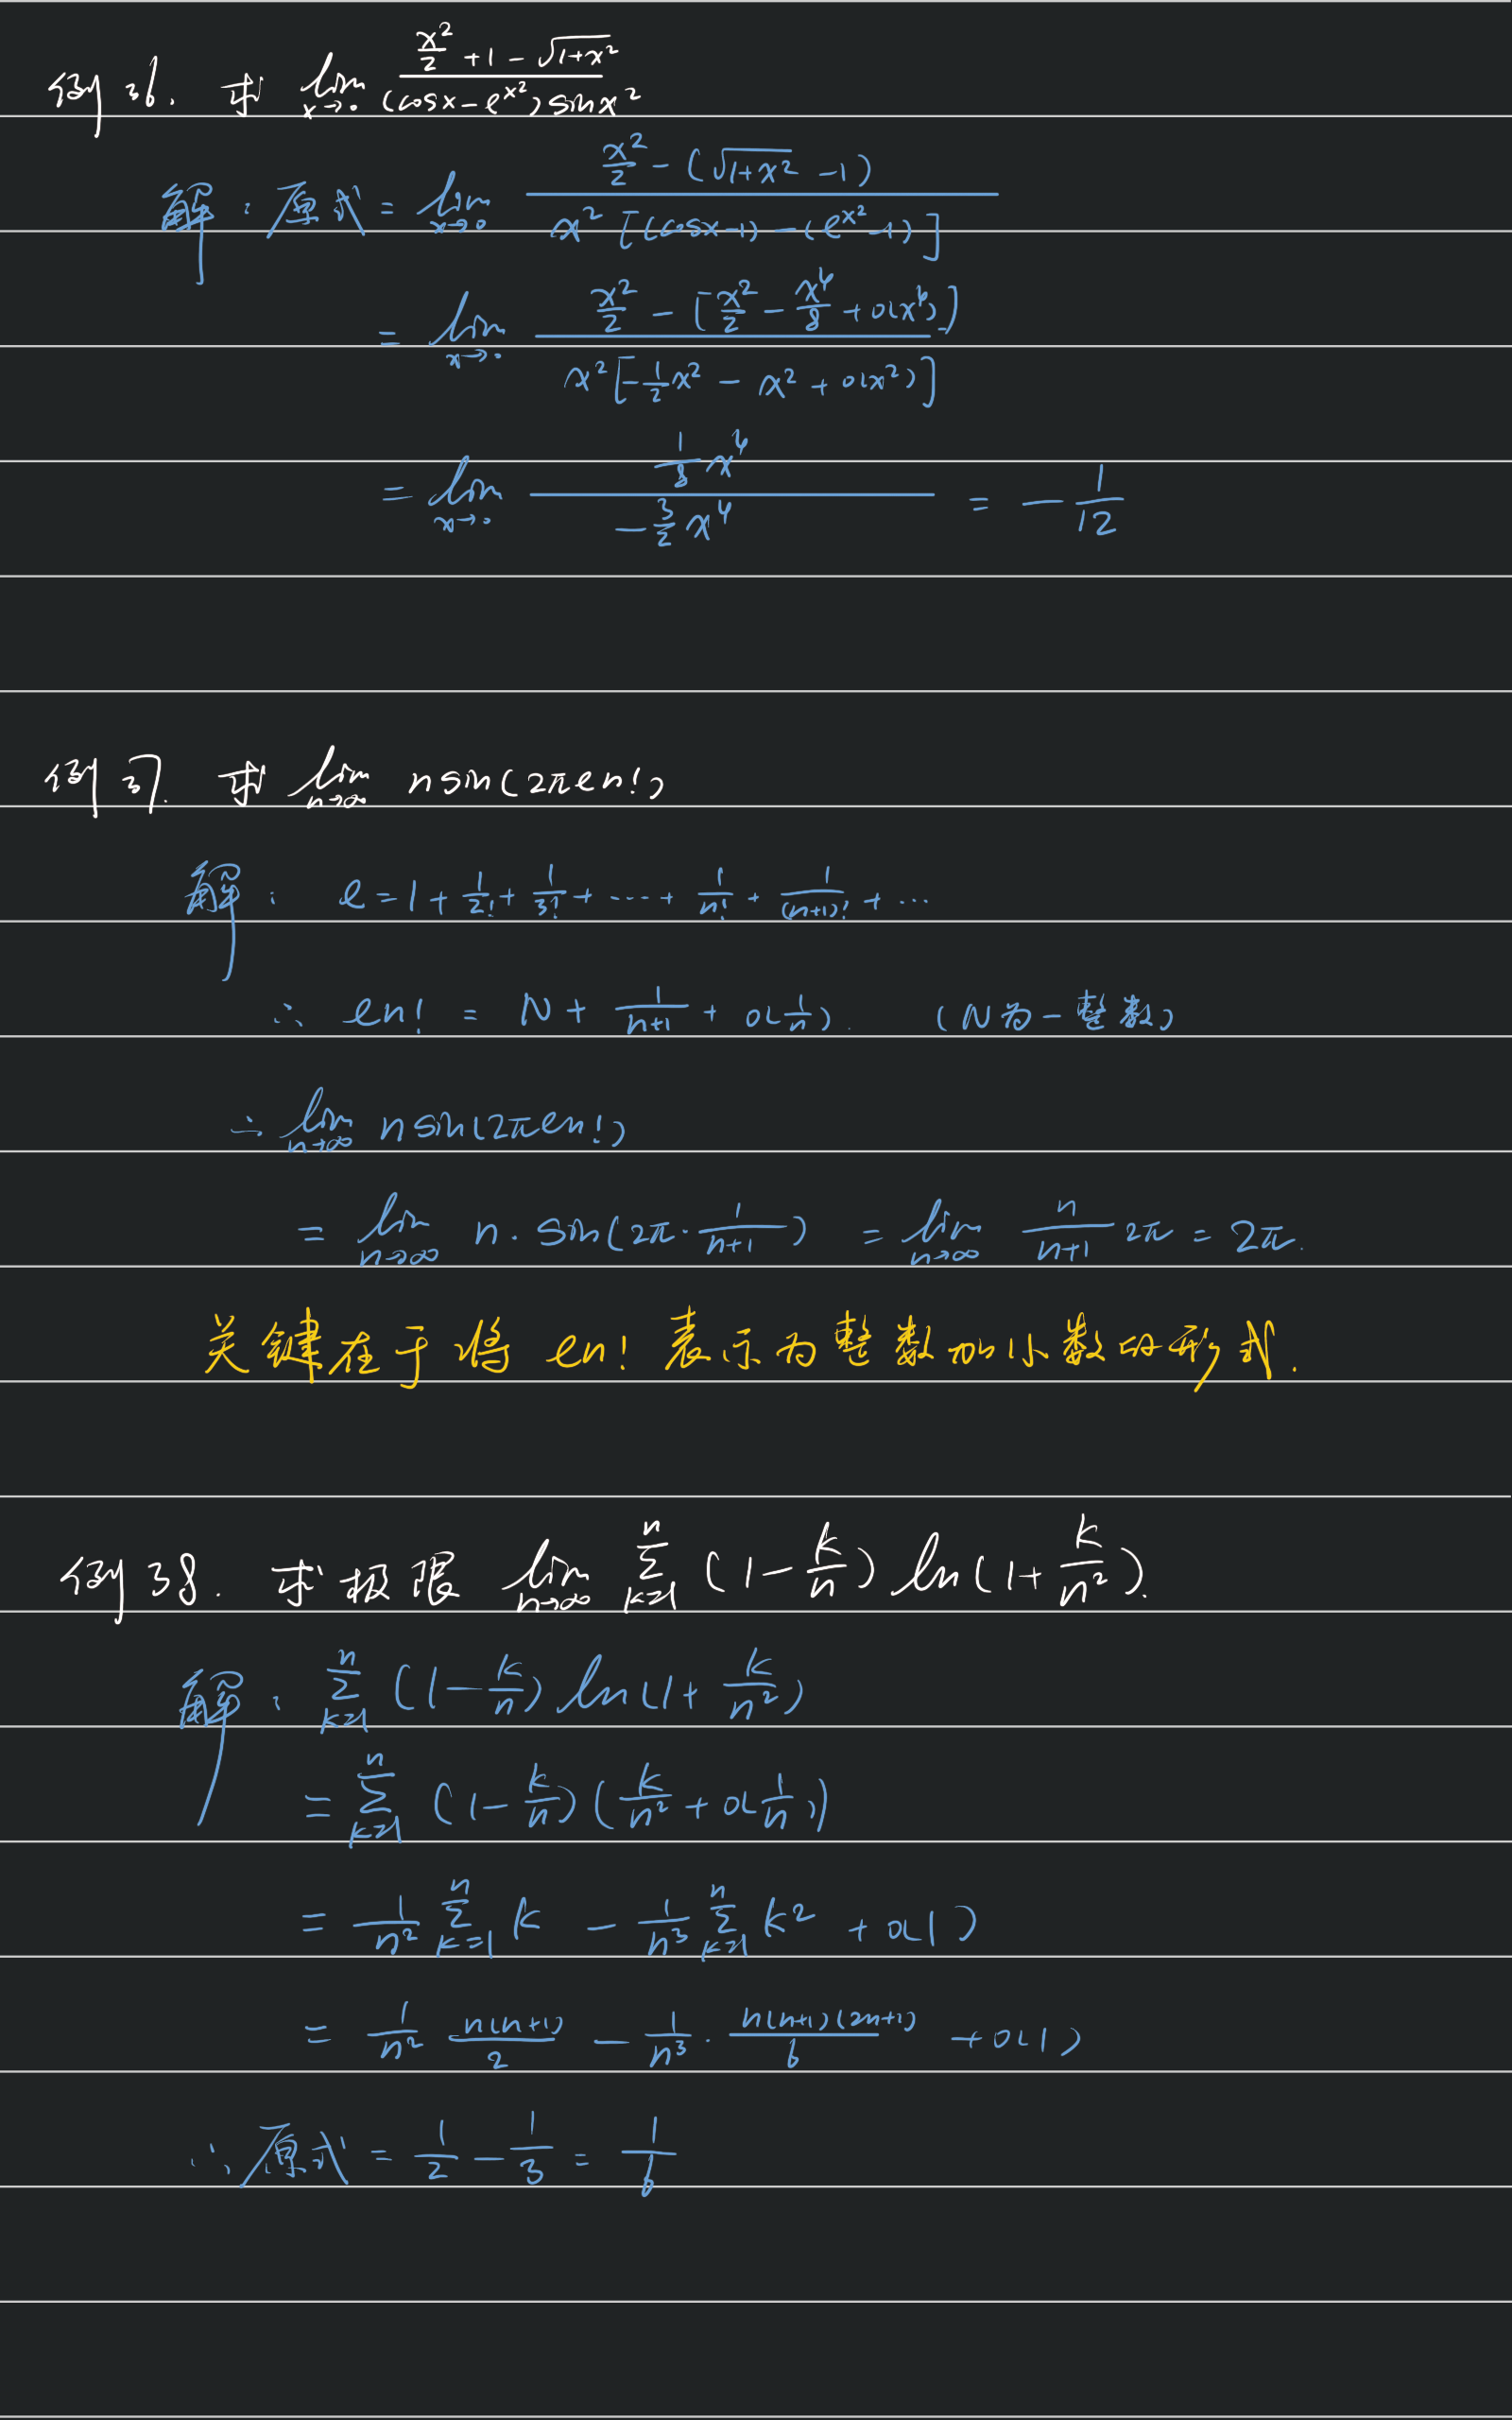 例36. 求 lim_{x→0} (x²/2 + 1 - √(1+x²)) / ((cosx - e^{x²}) sinx²)
解: 原式 = lim_{x→0} (x²/2 - (√(1+x²) - 1)) / (x²[(cosx-1) - (e^{x²}-1)])
= lim_{x→0} (x²/2 - [x²/2 - x⁴/8 + o(x⁴)]) / (x²[-1/2 x² - x² + o(x²)])
= lim_{x→0} (1/8 x⁴) / (-3/2 x⁴) = -1/12
例37. 求 lim_{n→∞} n sin(2πen!)
解: e = 1 + 1/2! + 1/3! + ⋯ + 1/n! + 1/(n+1)! + ⋯
∴ en! = N + 1/(n+1) + o(1/n). (N为一整数)
∴ lim_{n→∞} n sin(2πen!)
= lim_{n→∞} n·sin(2π·1/(n+1)) = lim_{n→∞} n/(n+1) 2π = 2π.
关键在于将 en! 表示为整数加小数的形式.
例38. 求极限 lim_{n→∞} ∑_{k=1}^{n} (1 - k/n) ln(1 + k/n²).
解: ∑_{k=1}^{n} (1 - k/n) ln(1 + k/n²)
= ∑_{k=1}^{n} (1 - k/n)(k/n² + o(1/n))
= 1/n² ∑_{k=1}^{n} k - 1/n³ ∑_{k=1}^{n} k² + o(1)
= 1/n² n(n+1)/2 - 1/n³ · n(n+1)(2n+1)/6 + o(1)
∴ 原式 = 1/2 - 1/3 = 1/6